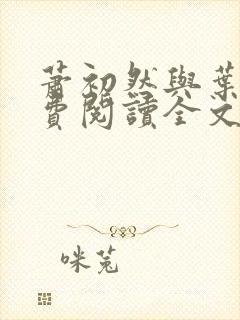 蕭初然與葉
費閱讀全文
咪菟